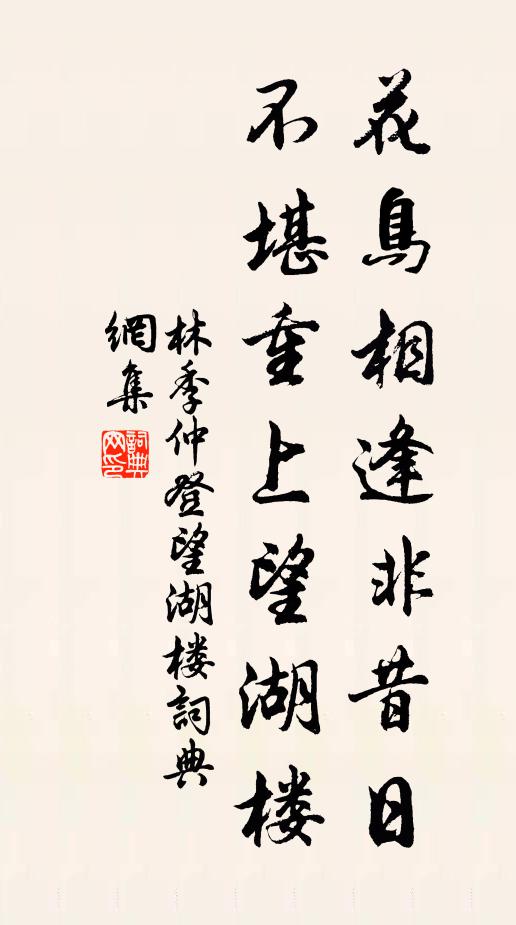 花鳥相逢非昔日
不堪重上望湖楼
林季仲登望湖楼詞典
網集
詞典网印